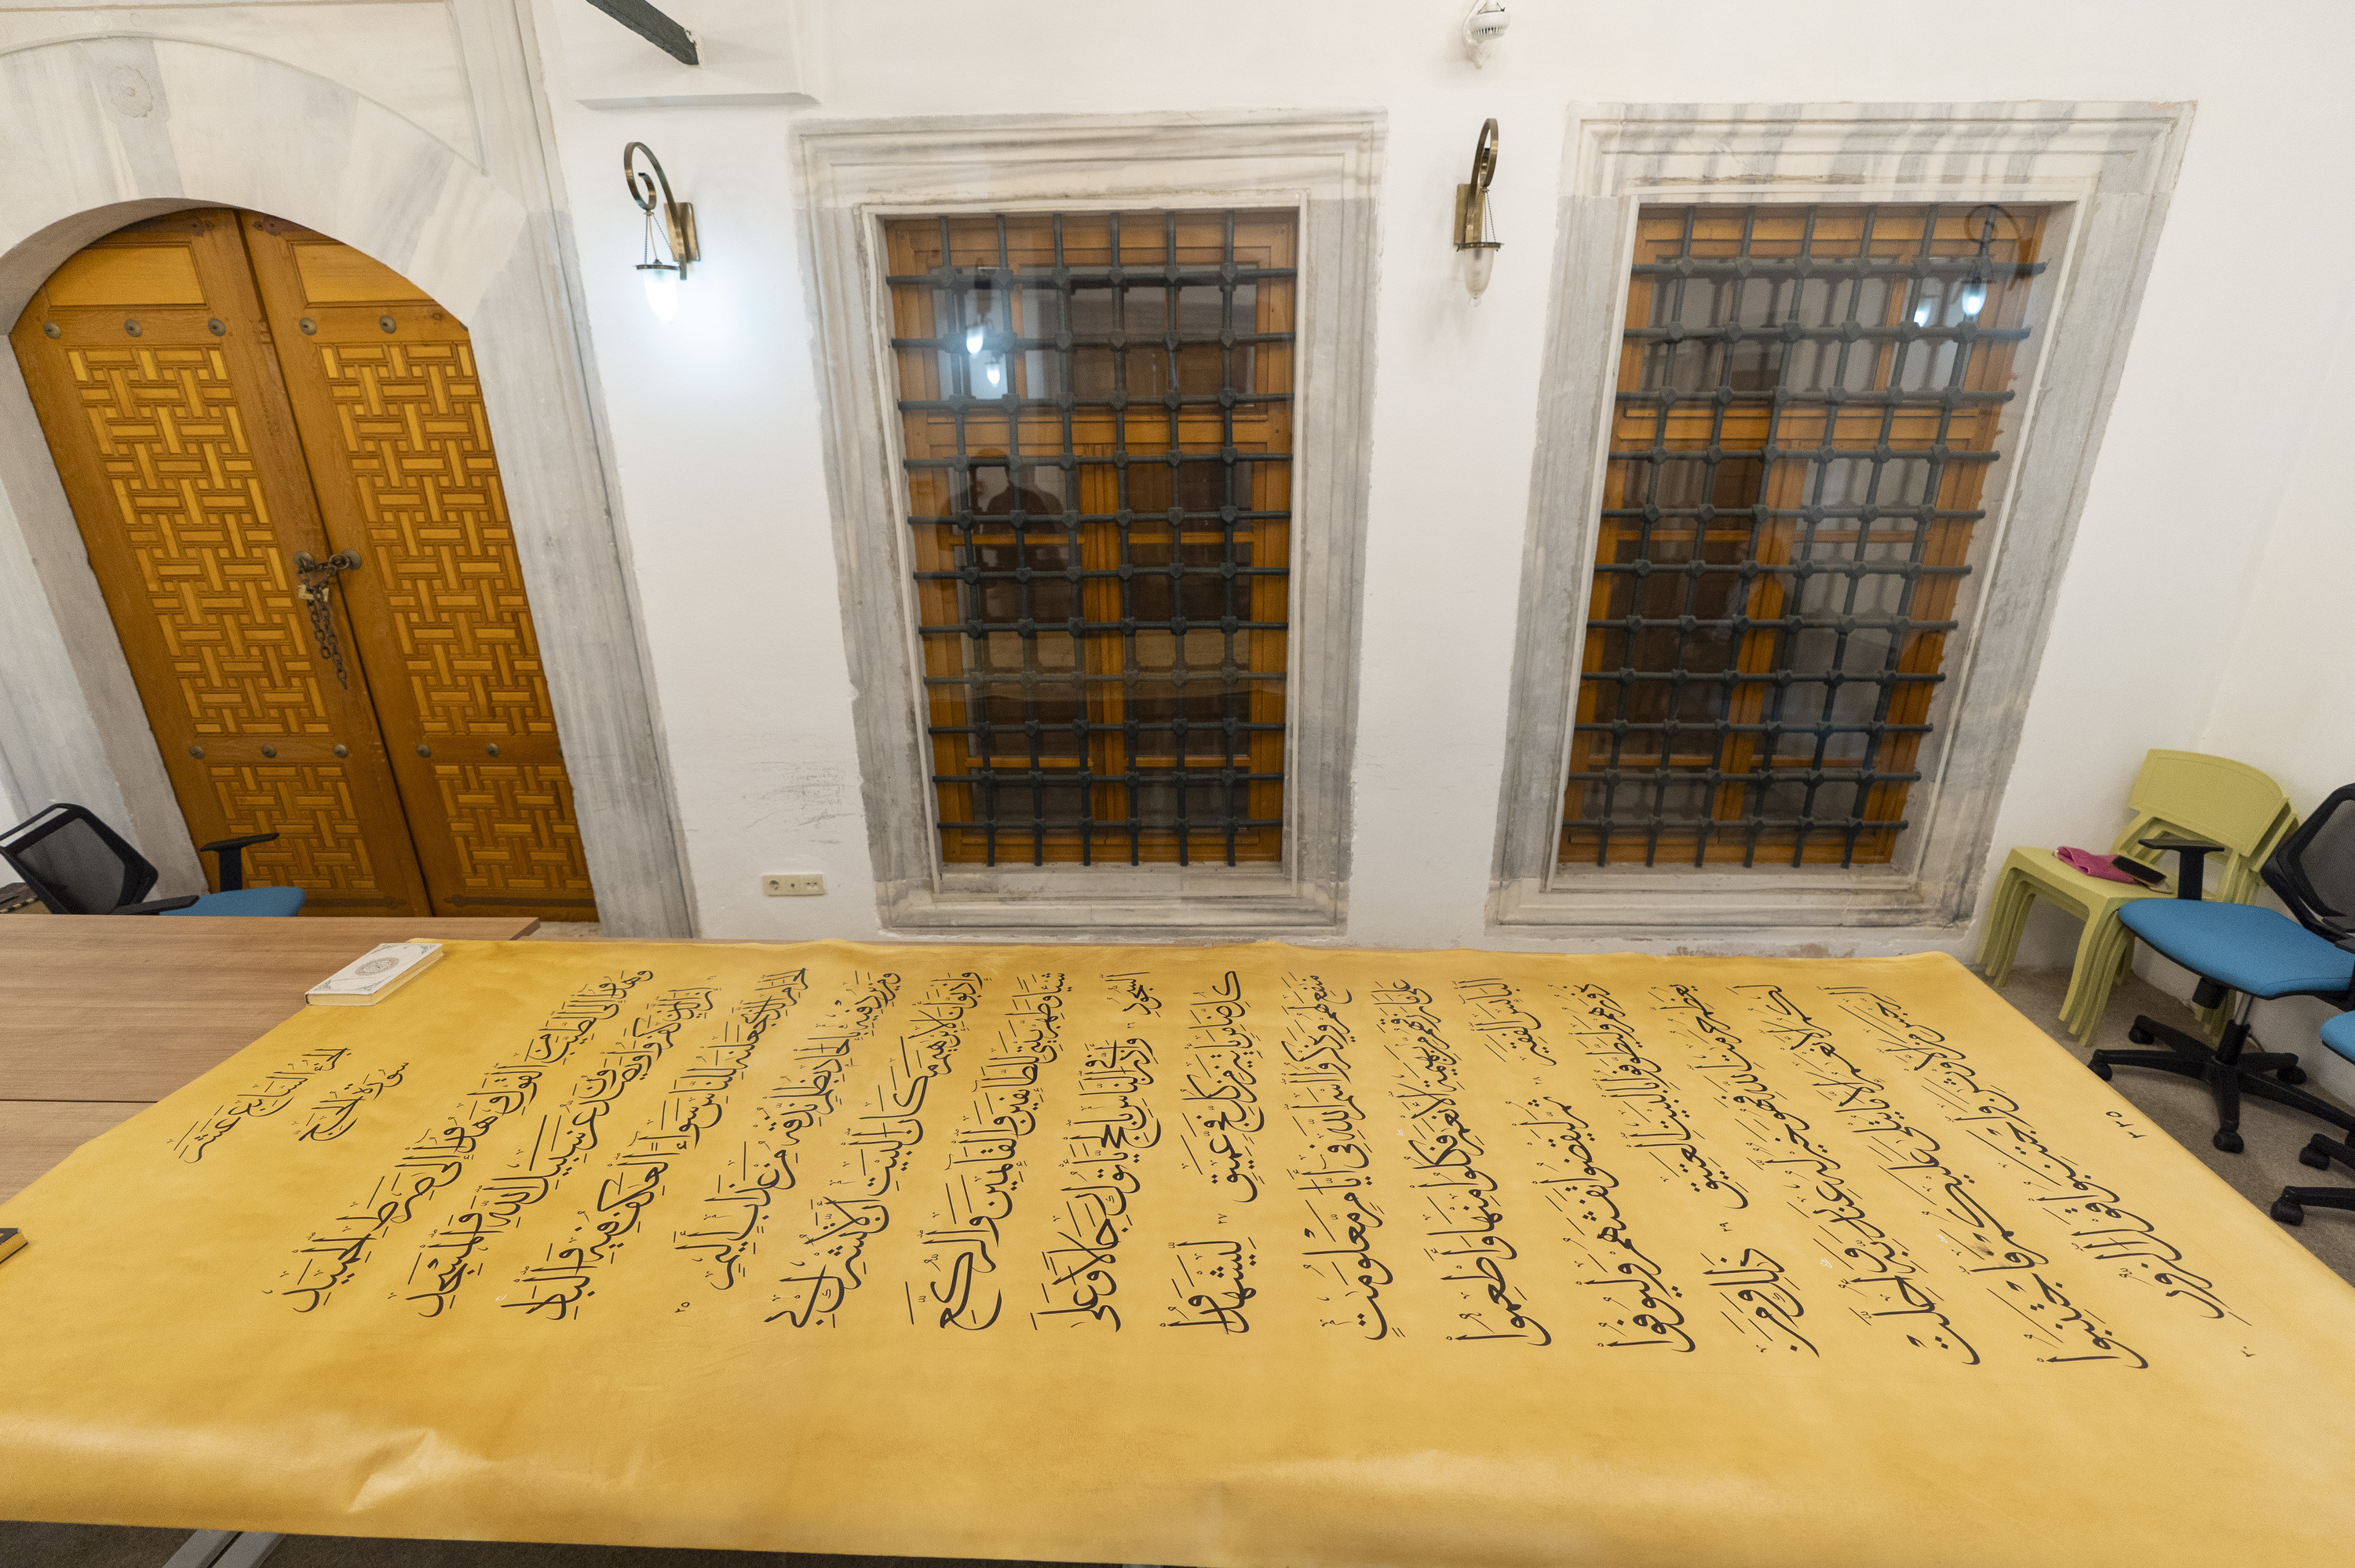 الجُزْءُ السَّابِعَ عَشَرَ
سُورَةُ الحَجِّ
وَهُدُوٓا۟ إِلَى ٱلطَّيِّبِ مِنَ ٱلْقَوْلِ وَهُدُوٓا۟ إِلَىٰ صِرَٰطِ ٱلْحَمِيدِ
٢٤ إِنَّ ٱلَّذِينَ كَفَرُوا۟ وَيَصُدُّونَ عَن سَبِيلِ ٱللَّهِ وَٱلْمَسْجِدِ
ٱلْحَرَامِ ٱلَّذِى جَعَلْنَٰهُ لِلنَّاسِ سَوَآءً ٱلْعَٰكِفُ فِيهِ وَٱلْبَادِ
وَمَن يُرِدْ فِيهِ بِإِلْحَادٍۭ بِظُلْمٍ نُّذِقْهُ مِنْ عَذَابٍ أَلِيمٍ ٢٥
وَإِذْ بَوَّأْنَا لِإِبْرَٰهِيمَ مَكَانَ ٱلْبَيْتِ أَن لَّا تُشْرِكْ بِى
شَيْـًٔا وَطَهِّرْ بَيْتِىَ لِلطَّآئِفِينَ وَٱلْقَآئِمِينَ وَٱلرُّكَّعِ
ٱلسُّجُودِ ٢٦ وَأَذِّن فِى ٱلنَّاسِ بِٱلْحَجِّ يَأْتُوكَ رِجَالًا وَعَلَىٰ
كُلِّ ضَامِرٍ يَأْتِينَ مِن كُلِّ فَجٍّ عَمِيقٍ ٢٧ لِّيَشْهَدُوا۟
مَنَٰفِعَ لَهُمْ وَيَذْكُرُوا۟ ٱسْمَ ٱللَّهِ فِىٓ أَيَّامٍ مَّعْلُومَٰتٍ
عَلَىٰ مَا رَزَقَهُم مِّنۢ بَهِيمَةِ ٱلْأَنْعَٰمِ فَكُلُوا۟ مِنْهَا وَأَطْعِمُوا۟
ٱلْبَآئِسَ ٱلْفَقِيرَ ٢٨ ثُمَّ لْيَقْضُوا۟ تَفَثَهُمْ وَلْيُوفُوا۟
نُذُورَهُمْ وَلْيَطَّوَّفُوا۟ بِٱلْبَيْتِ ٱلْعَتِيقِ ٢٩ ذَٰلِكَ وَمَن
يُعَظِّمْ حُرُمَٰتِ ٱللَّهِ فَهُوَ خَيْرٌ لَّهُۥ عِندَ رَبِّهِۦ وَأُحِلَّتْ
لَكُمُ ٱلْأَنْعَٰمُ إِلَّا مَا يُتْلَىٰ عَلَيْكُمْ فَٱجْتَنِبُوا۟
ٱلرِّجْسَ مِنَ ٱلْأَوْثَٰنِ وَٱجْتَنِبُوا۟ قَوْلَ ٱلزُّورِ ٣٠
٣٣٥